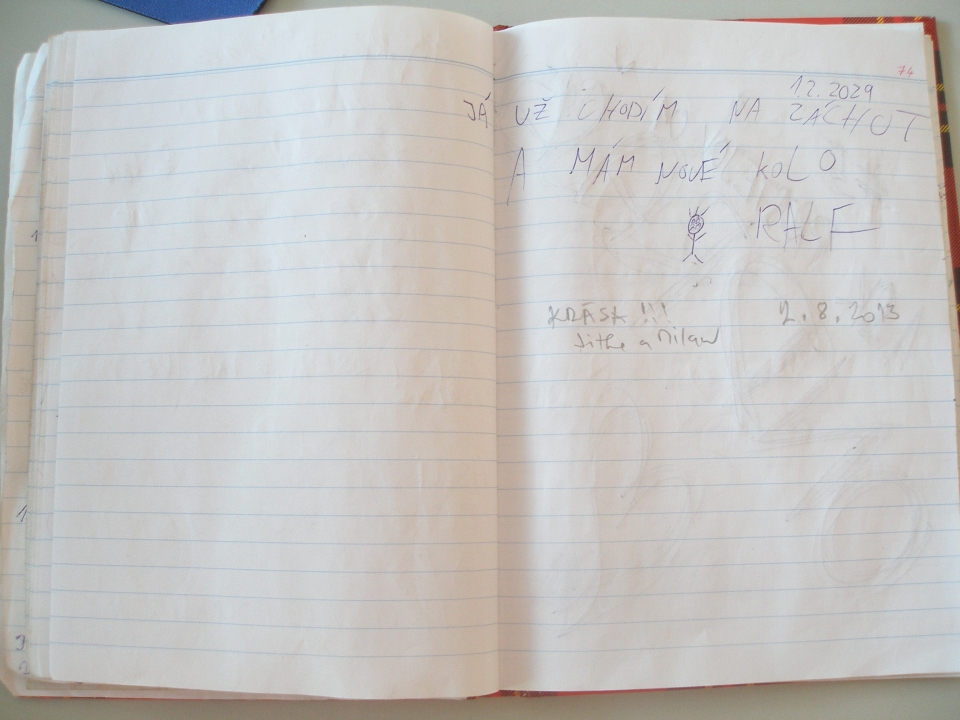 74
1.2.2029
JÁ UŽ CHODÍM NA ZÁCHOT
A MÁM NOVÉ KOLO
RALF
KRÁSA !!! 2.8.2013
Jitka a Milan